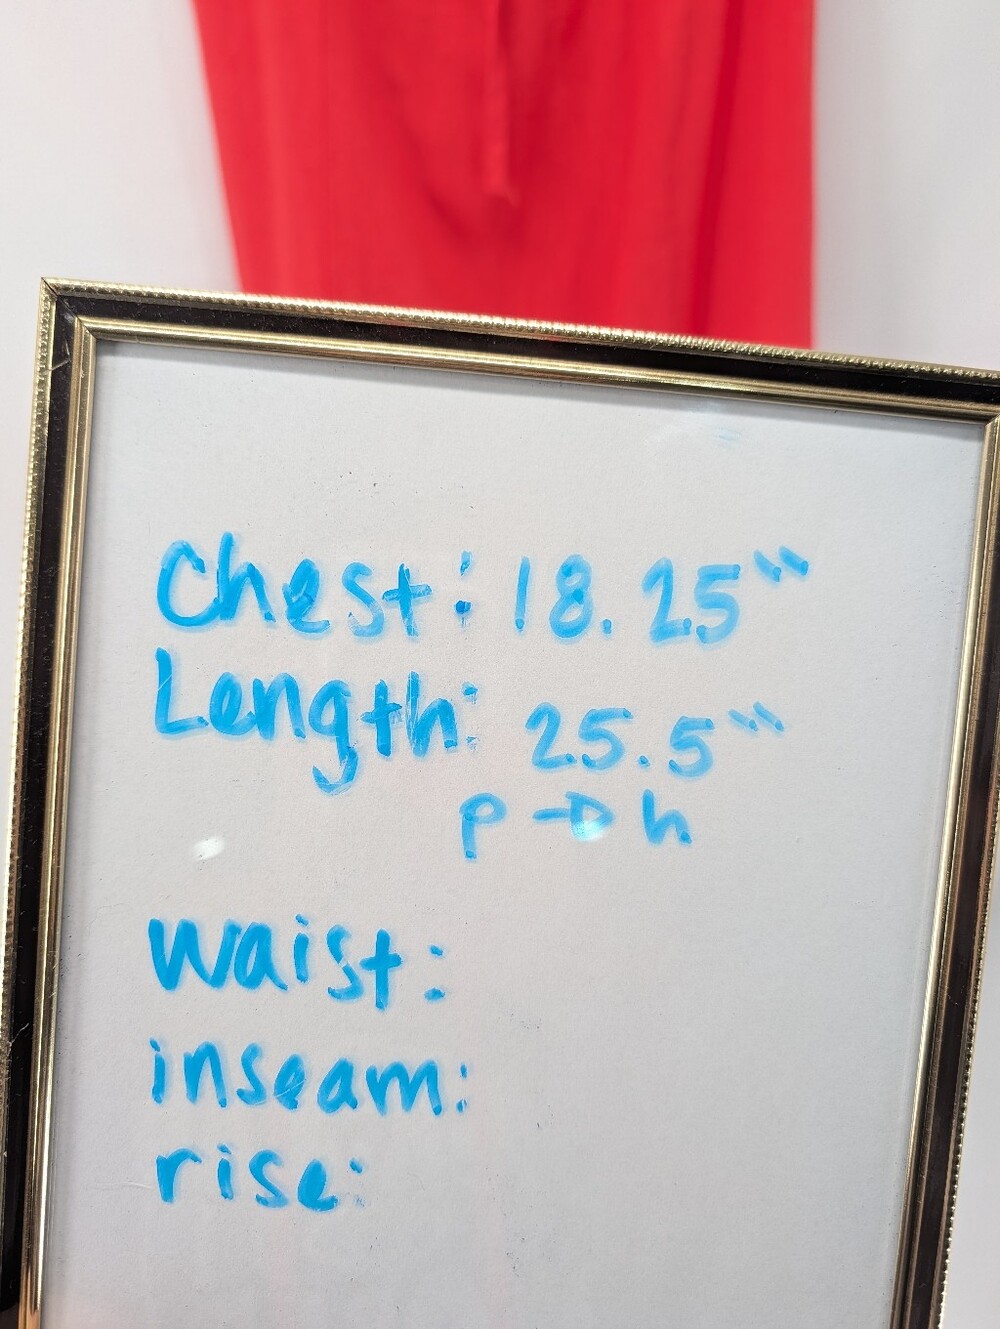 Chest: 18.25"
Length: 25.5"
p → h
waist:
inseam:
rise: